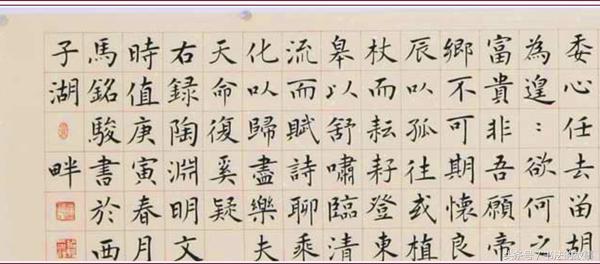 委心任去留胡
為遑〻欲何之
富貴非吾願帝
鄉不可期懷良
辰以孤往或植
杖而耘耔登東
皋以舒嘯臨清
流而賦詩聊乘
化以歸盡樂夫
天命復奚疑
右録陶淵明文
時值庚寅春月
馬銘駿書於西
子湖畔